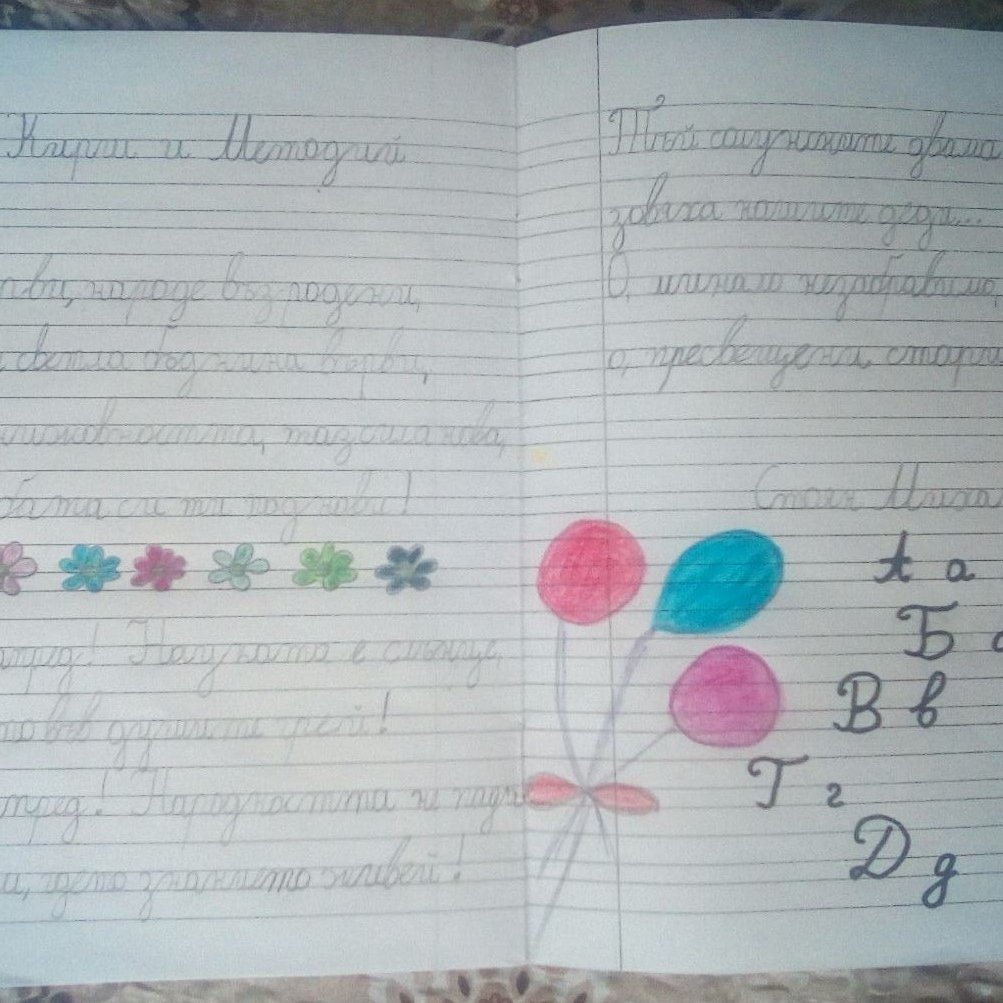 Кирил и Методий
ави, народе възродени,
светла бъднина върви,
нижовността, таз сила нова,
бата си ти поднови!
пред! Науката е слънце,
то във душите грей!
пред! Народността не пада
и, гдето знаньето живей!
Тъй солунските двама
зовяха нашите деди...
О, минало незабравимо,
о, пресвещени стари
Стоян Миха
А а
Б
В в
Г г
Д д